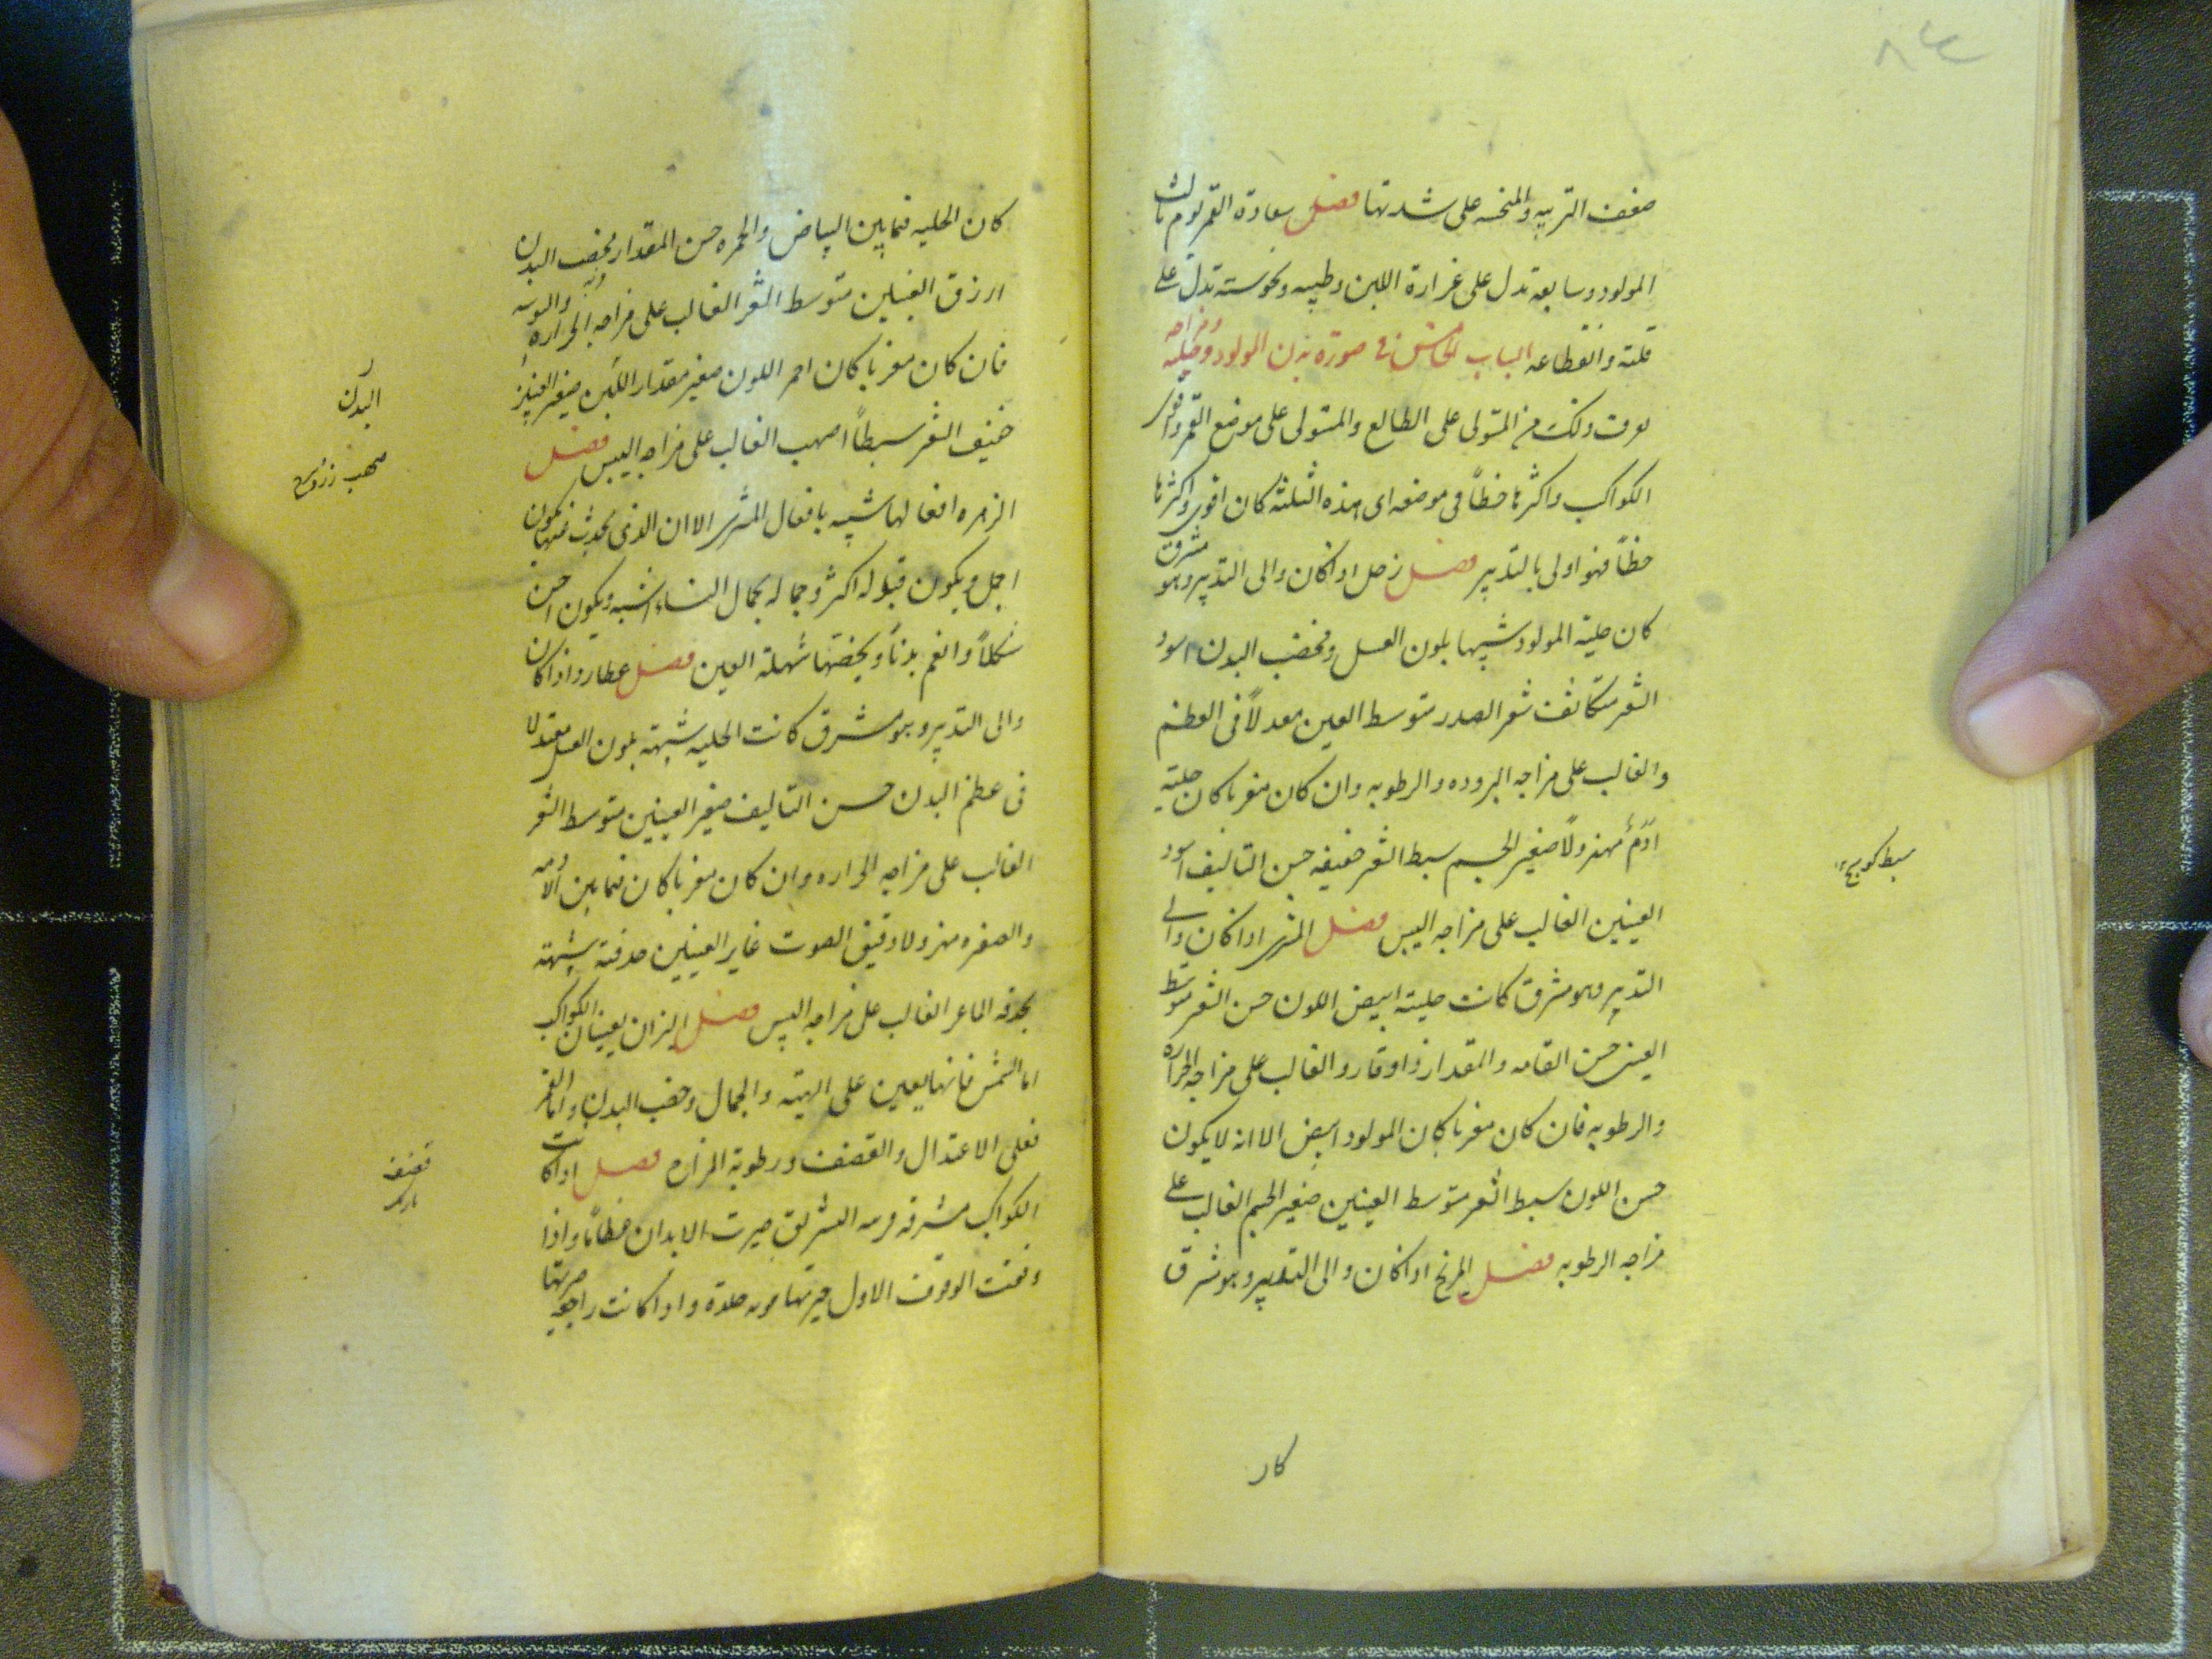 ضعف التربيه والمنحسه على شدتها فصل سعادة القمر يوم ثالث
المولود وسابعه تدل على غزارة اللبن وطيبه ونحوسته تدل على
قلته وانقطاعه الباب الخامس فى صورة بدن المولود وحليته ومزاجه
يعرف ذلك من المستولى على الطالع والمستولى على موضع القمر واقوى
الكواكب واكثرها حظاً فى موضعه اى هذه الثلثة كان اقوى واكثرها
حظاً فهو اولى بالتدبير فصل زحل اذا كان والى التدبير وهو مشرق
كان حلية المولود شبيها بلون العسل ومخصب البدن اسود
الشعر متكاثف شعر الصدر متوسط العين معدلاً فى العظم
والغالب على مزاجه البروده والرطوبه وان كان مغربا كان حليته
آدم مهزولاً صغير الجسم سبط الشعر خفيفه حسن التاليف اسود
العينين الغالب على مزاجه اليبس فصل المشترى اذا كان والى
التدبير وهو مشرق كانت حليته ابيض اللون حسن الشعر متوسط
العين حسن القامه والمقدار ذا وقار والغالب على مزاجه الحراره
والرطوبه فان كان مغربا كان المولود ابيض الا انه لا يكون
حسن اللون سبط الشعر متوسط العينين صغير الجسم الغالب على
مزاجه الرطوبه فصل المريخ اذا كان والى التدبير وهو مشرق
سبط
كان
كان الحليه فيما بين البياض والحمره حسن المقدار مخصب البدن
ازرق العينين متوسط الشعر الغالب على مزاجه الحراره واليبوسه
فان كان مغربا كان احمر اللون صغير مقدار البدن صغير العينين
خفيف الشعر سبطاً اصهب الغالب على مزاجه اليبس فصل
الزهره افعالها شبيه بافعال المشترى الا ان الذى يحدث منها يكون
اجمل ويكون قبوله اكثر وجماله بجمال النساء اشبه ويكون احسن
شكلاً وانعم بدناً ويخصها شهلة العين فصل عطارد اذا كان
والى التدبير وهو مشرق كانت الحليه شبيهة بلون العسل معتدلا
فى عظم البدن حسن التاليف صغير العينين متوسط الشعر
الغالب على مزاجه الحراره وان كان مغربا كان فيما بين الادمه
والصفره مهزولا دقيق الصوت غاير العينين حدقته شبيهة
بحدقه الماعز الغالب على مزاجه اليبس فصل النيران يعينان الكواكب
اما الشمس فانها يعين على الهيئه والجمال وخصب البدن واما القمر
فعلى الاعتدال والقضف ورطوبة المزاج فصل اذا كانت
الكواكب مشرقه قريبه التشريق صيرت الابدان عظاما واذا
وقفت الوقوف الاول صيرتها قويه صلدة واذا كانت راجعه صيرتها
البدن
صهب
قضيفه